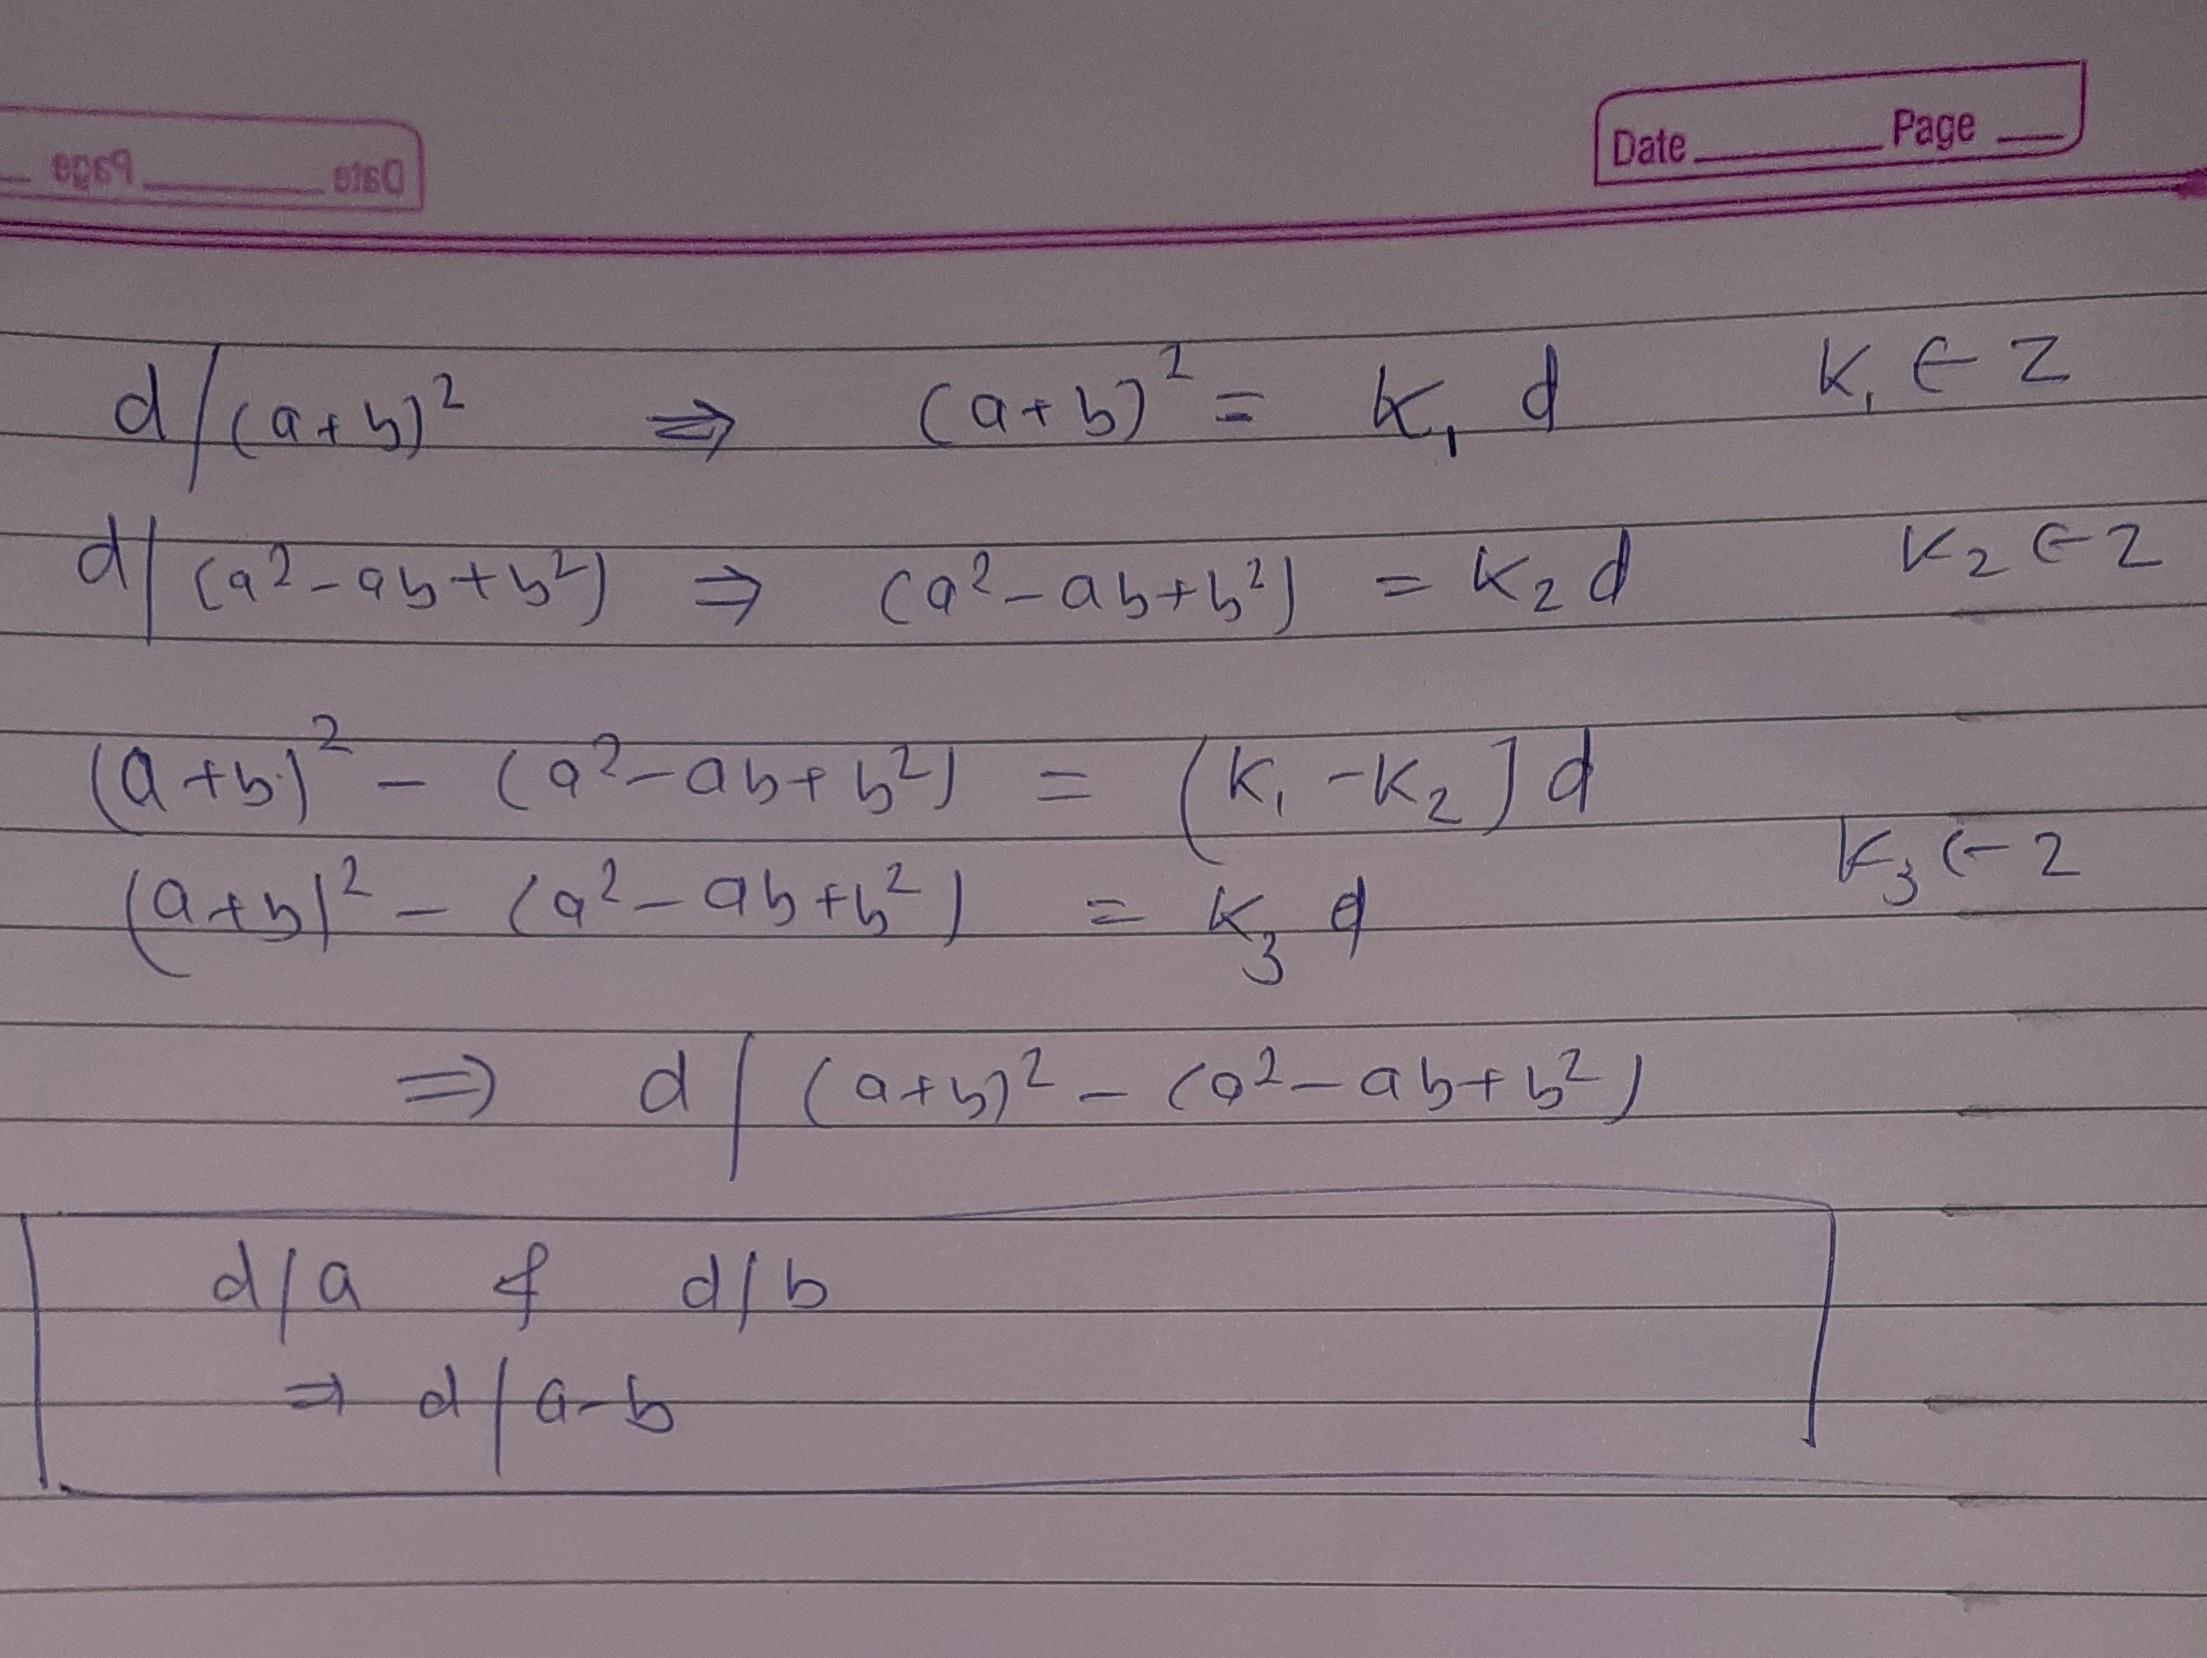 Date Page
Date Page
d/(a+b)² ⇒ (a+b)² = K₁ d K₁ ∈ Z
d/(a²-ab+b²) ⇒ (a²-ab+b²) = K₂ d K₂ ∈ Z
(a+b)² - (a²-ab+b²) = (K₁-K₂) d
K₃ ∈ Z
(a+b)² - (a²-ab+b²) = K₃ d
⇒ d/(a+b)² - (a²-ab+b²)
d/a & d/b
⇒ d/a-b